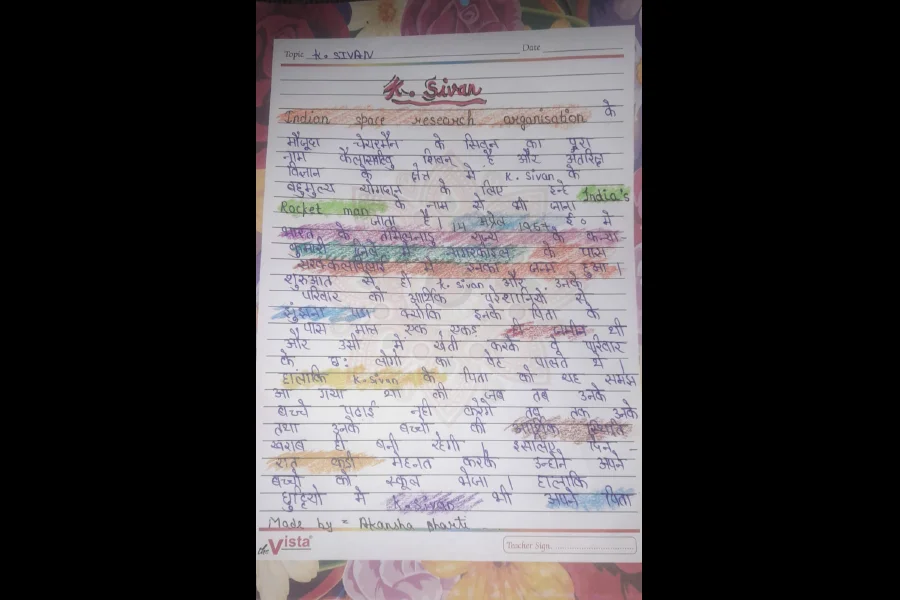 Topic K. SIVAN Date
K. Sivan
Indian space research organisation के
मौजूदा चेयरमैन के सिवन का पूरा
नाम शिवन है और अंतरिक्ष
विज्ञान के क्षेत्र में K. Sivan के
बहुमुल्य योगदान के लिए इन्हे India's
Rocket man के नाम से भी जाना
जाता है। 14 अप्रैल 1957 ई० में
भारत के तमिलनाडु राज्य के कन्या
कुमारी जिले में नागरकोइल के पास
में उनका जन्म हुआ।
शुरुआत से ही K. Sivan और उनके
परिवार को आर्थिक परेशानियों से
पड़ा क्योंकि इनके पिता के
पास मात्र एक एकड़ ही जमीन थी
और उसी में खेती करके वे परिवार
के छः लोगो का पेट पालते थे।
हालाकि K. Sivan के पिता को यह समझ
आ गया था की जब तब उनके
बच्चे पढाई नही करेगे तब तक उनके
तथा उनके बच्चो की आर्थिक स्थिति
खराब ही बनी रहेगी। इसलिए दिन -
रात कडी मेहनत करके उन्होने अपने
बच्चो को स्कूल भेजा। हालाकि
छुट्टियो में K. Sivan भी अपने पिता
Made by = Akansha Bharti
the Vista Teacher Sign.